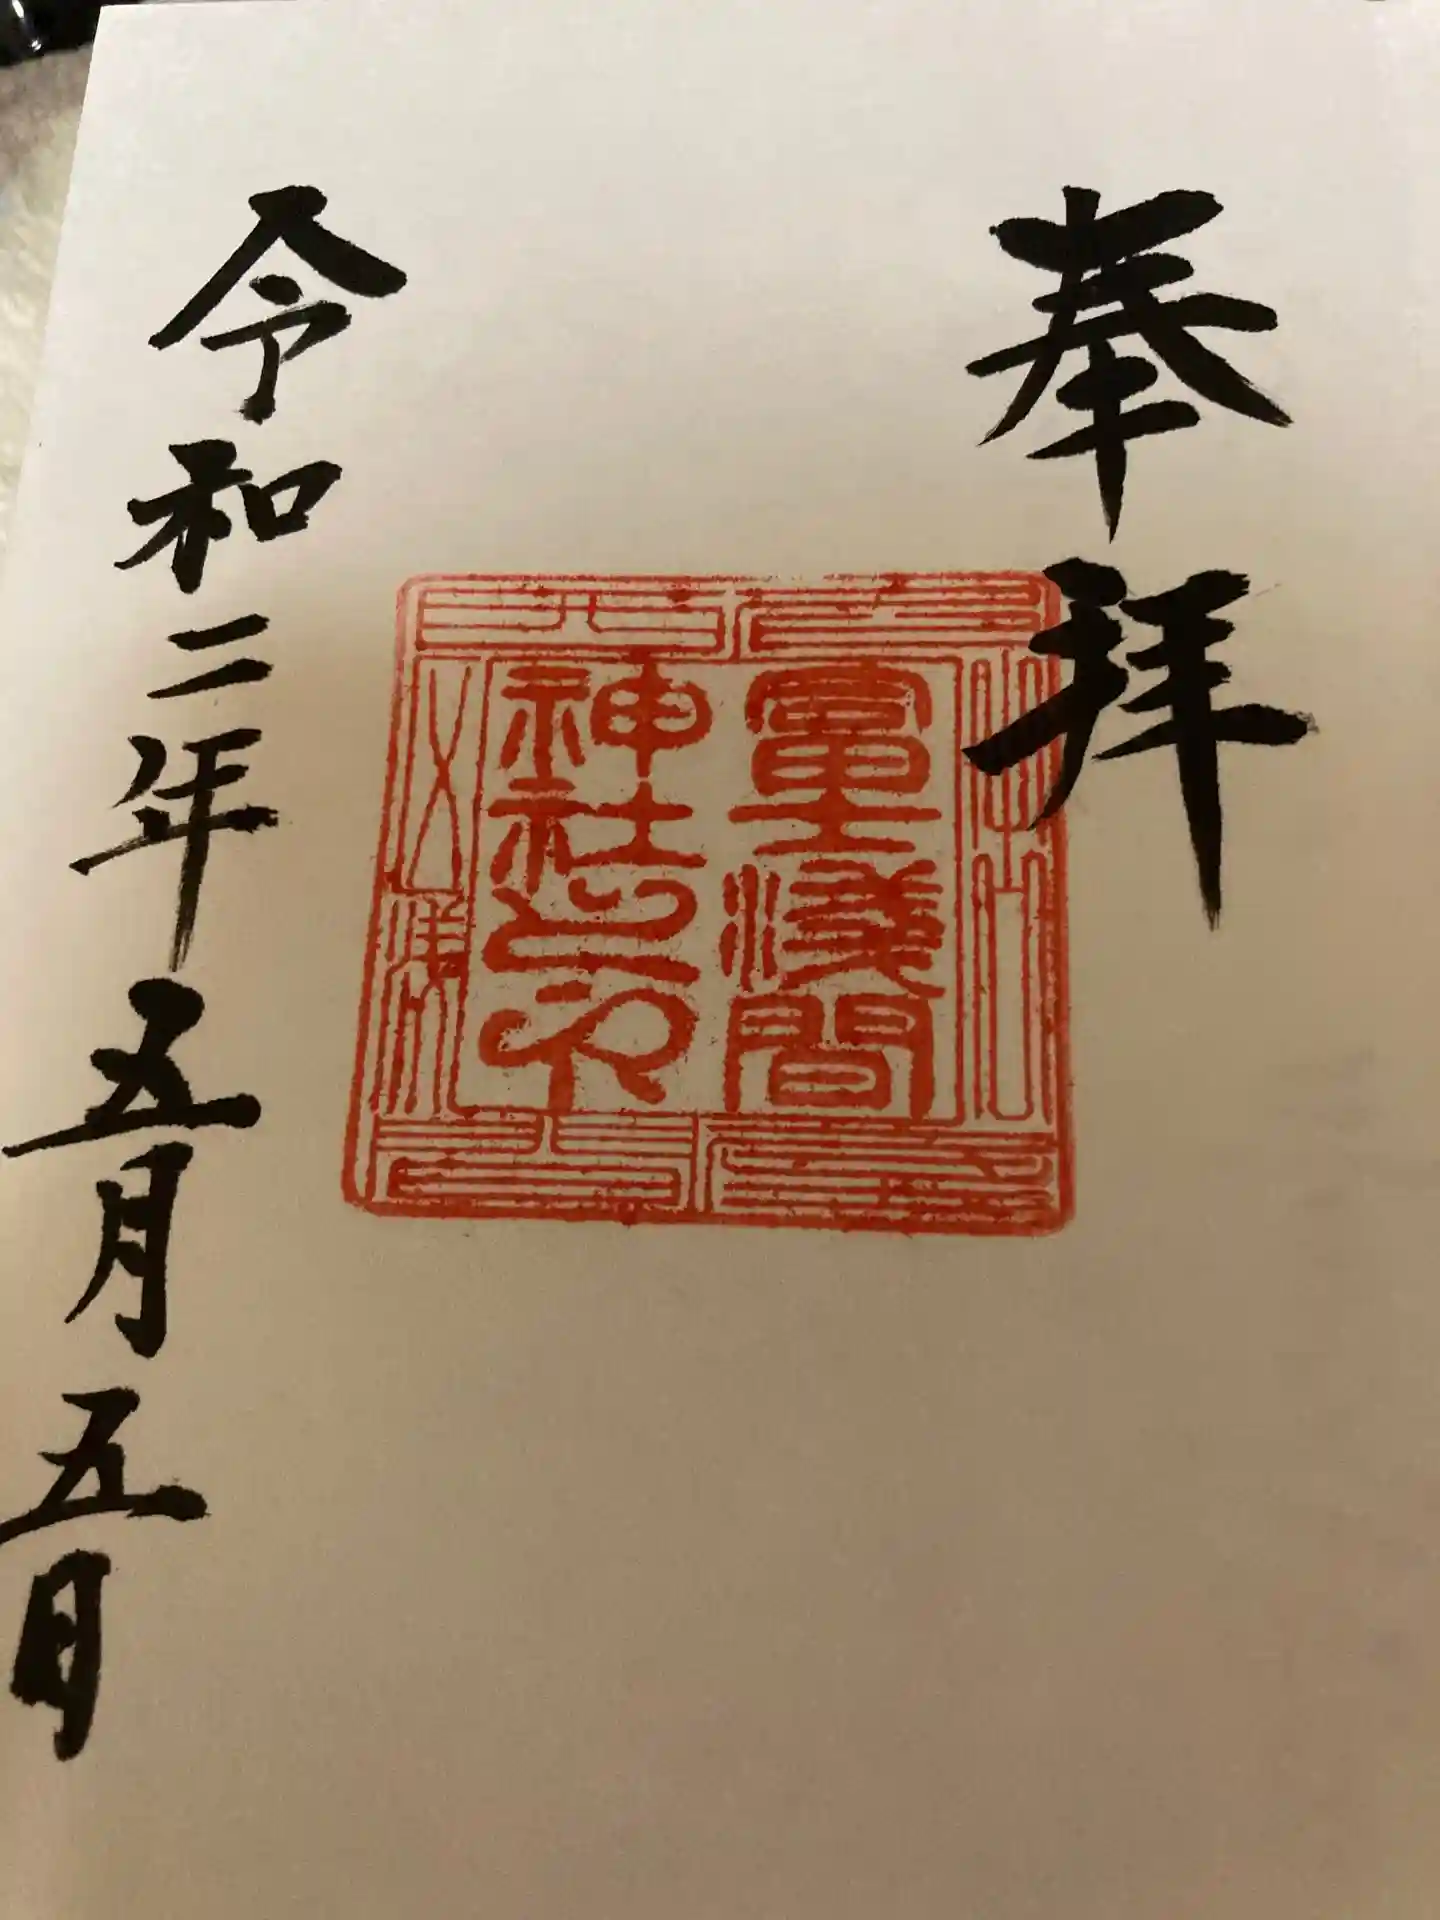 奉拝
富士浅間
神社之印
令和二年五月五日